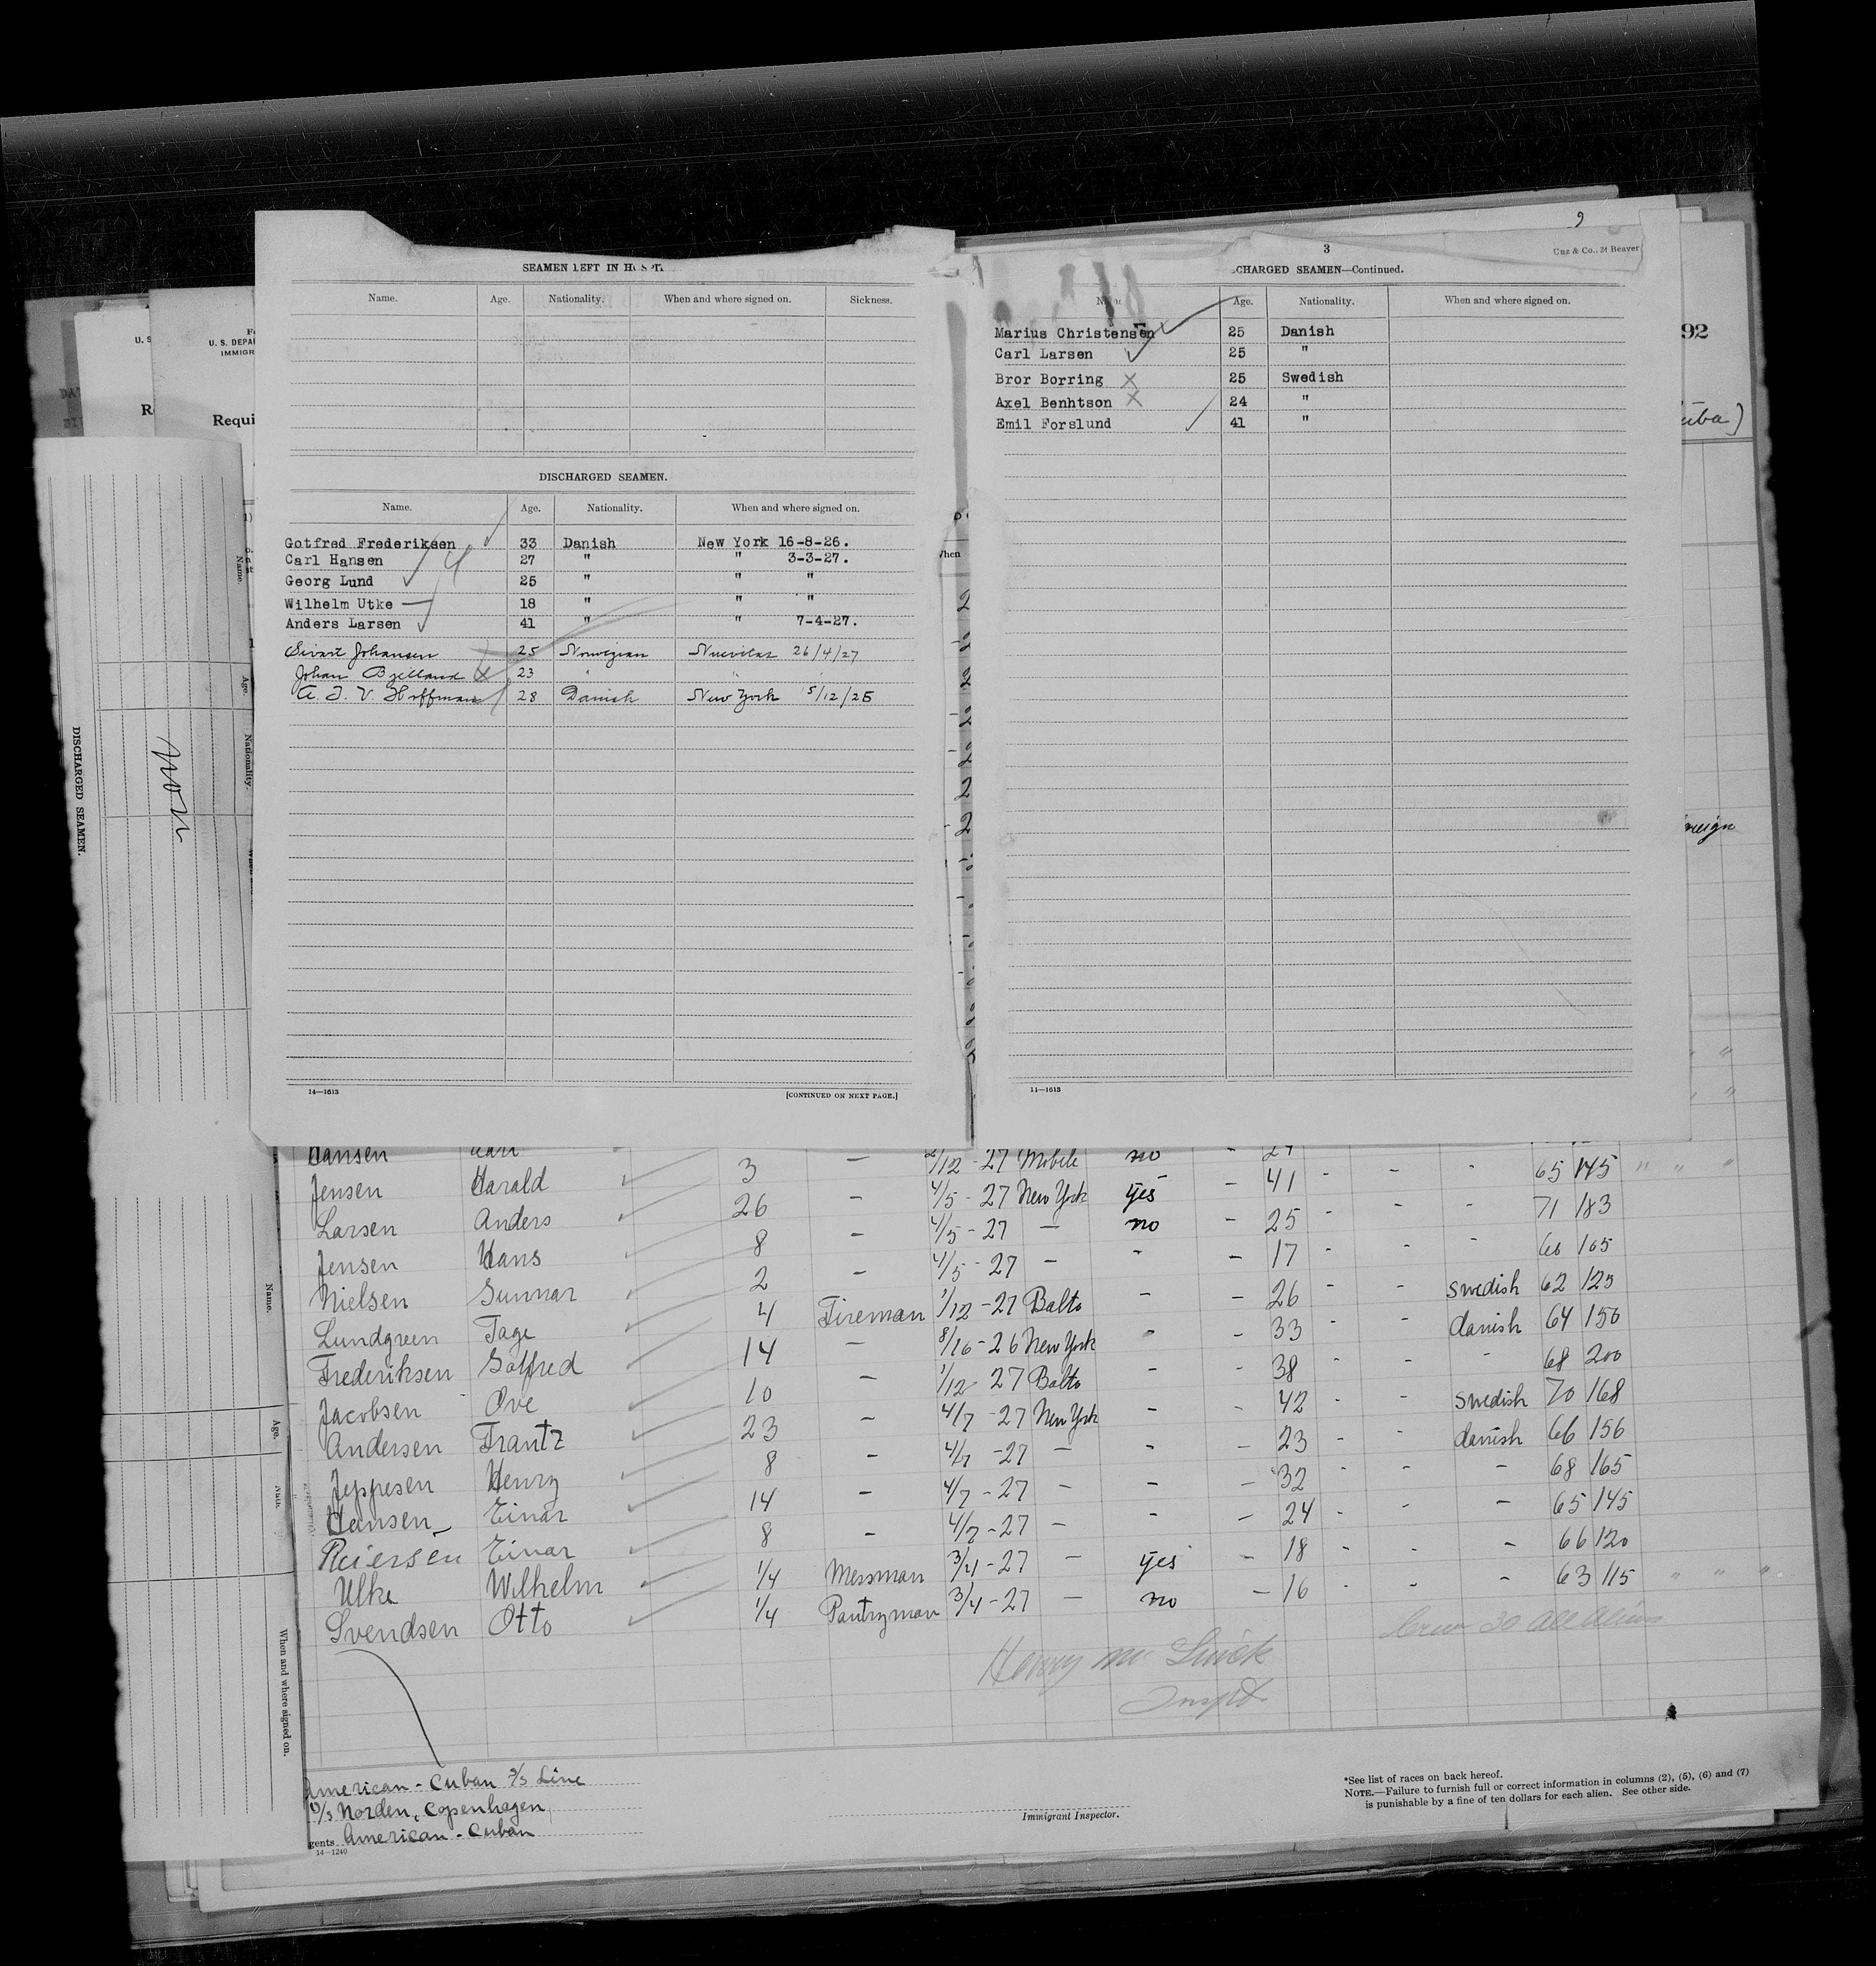 SEAMEN LEFT IN
Name. Age. Nationality. When and where signed on. Sickness.
DISCHARGED SEAMEN.
Name. Age. Nationality. When and where signed on.
Gotfred Frederiksen 33 Danish New York 16-8-26.
Carl Hansen 27 " " 3-3-27.
Georg Lund 25 " " "
Wilhelm Utke 18 " " "
Anders Larsen 41 " " 7-4-27.
Johansen 25 Norwegian Nuevitas 26/4/27
Johan 23 "
A. J. V. Hoffman 28 Danish New York
14—1613 [CONTINUED ON NEXT PAGE.]
9
3
Unz & Co., 24 Beaver
CHARGED SEAMEN—Continued.
Age. Nationality. When and where signed on.
Marius Christensen 25 Danish
Carl Larsen 25 "
Bror Borring 25 Swedish
Axel Benhtson 24 "
Emil Forslund 41 "
14—1613
92
uba)
reign
U. S
U. S. DEPA
IMMIGR
R
Requi
DISCHARGED SEAMEN.
Name.
Age.
Nationality.
Name.
Age.
When and where signed on.
Hansen 2/12-27 Mobile no - 27
Jensen Harald 3 - 4/5-27 New York yes - 41 - - 65 145 " " "
Larsen Anders 26 - 4/5-27 - no - 25 - - - 71 183
Jensen Hans 8 - 4/5-27 - - - 17 - - - 165
Nielsen Gunnar 2 Fireman 1/12-27 Balto - - 26 - - Swedish 62 125
Lundgreen Tage 4 - 8/16-26 New York - - 33 - - danish 64 150
Frederiksen Gotfred 14 - 1/12-27 Balto - - 38 - - - 68 200
Jacobsen Ove 10 - 4/7-27 New York - - 42 - - Swedish 70 168
Andersen Frantz 23 - 4/7-27 - - - 23 - - danish 66 156
Jeppesen Henry 8 - 4/7-27 - - - 32 - - - 68 165
Hansen Einar 14 - 4/7-27 - - - 24 - - - 65 145
Reiersen Einar 8 Messman 3/4-27 - yes - 18 - - - 66 120
Utke Wilhelm 1/4 Pantryman 3/4-27 - no - 16 - - - 63 115 " " "
Svendsen Otto 1/4
Crew 30 all aliens
Henry
Inspt
American-Cuban S/S Line
Norden, Copenhagen
gents American-Cuban
14—1240
Immigrant Inspector.
*See list of races on back hereof.
NOTE.—Failure to furnish full or correct information in columns (2), (5), (6) and (7)
is punishable by a fine of ten dollars for each alien. See other side.